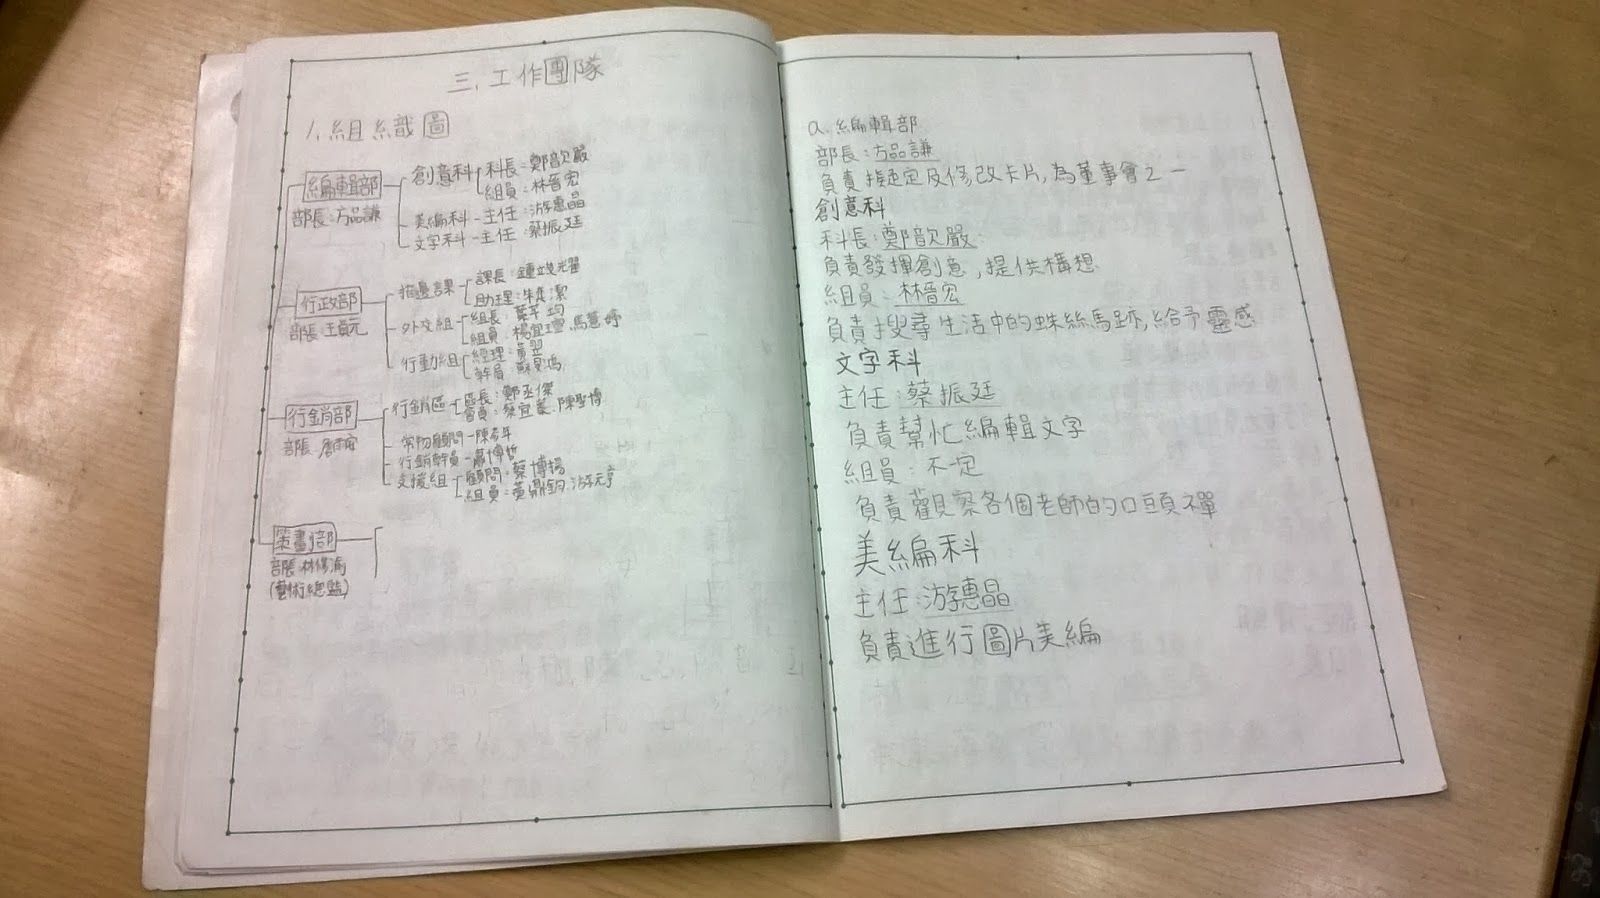 三.工作團隊
1.組織圖
編輯部
部長:方品謙
創意科 科長:鄭歆嚴
組員:林晉宏
美編科-主任:游惠晶
文字科-主任:蔡振廷
行政部
部長:王
描邊課 課長:鍾
助理:朱 潔
外交組 組長:葉芊均
組員:楊宜 .馬蕙婷
行動組 經理:黃翌
幹員:蘇
行銷部
部長:
行銷區 區長:鄭丞傑
會員:蔡宜蓁.陳聖博
常物顧問-陳 年
行銷幹員-蕭博哲
支援組 顧問:蔡博揚
組員:黃鼎鈞.游元亨
策畫部
部長:林修
(藝術總監)
a.編輯部
部長:方品謙
負責擬定及修改卡片,為董事會之一
創意科
科長:鄭歆嚴
負責發揮創意,提供構想
組員:林晉宏
負責搜尋生活中的蛛絲馬跡,給予靈感
文字科
主任:蔡振廷
負責幫忙編輯文字
組員:不定
負責觀察各個老師的口頭禪
美編科
主任:游惠晶
負責進行圖片美編